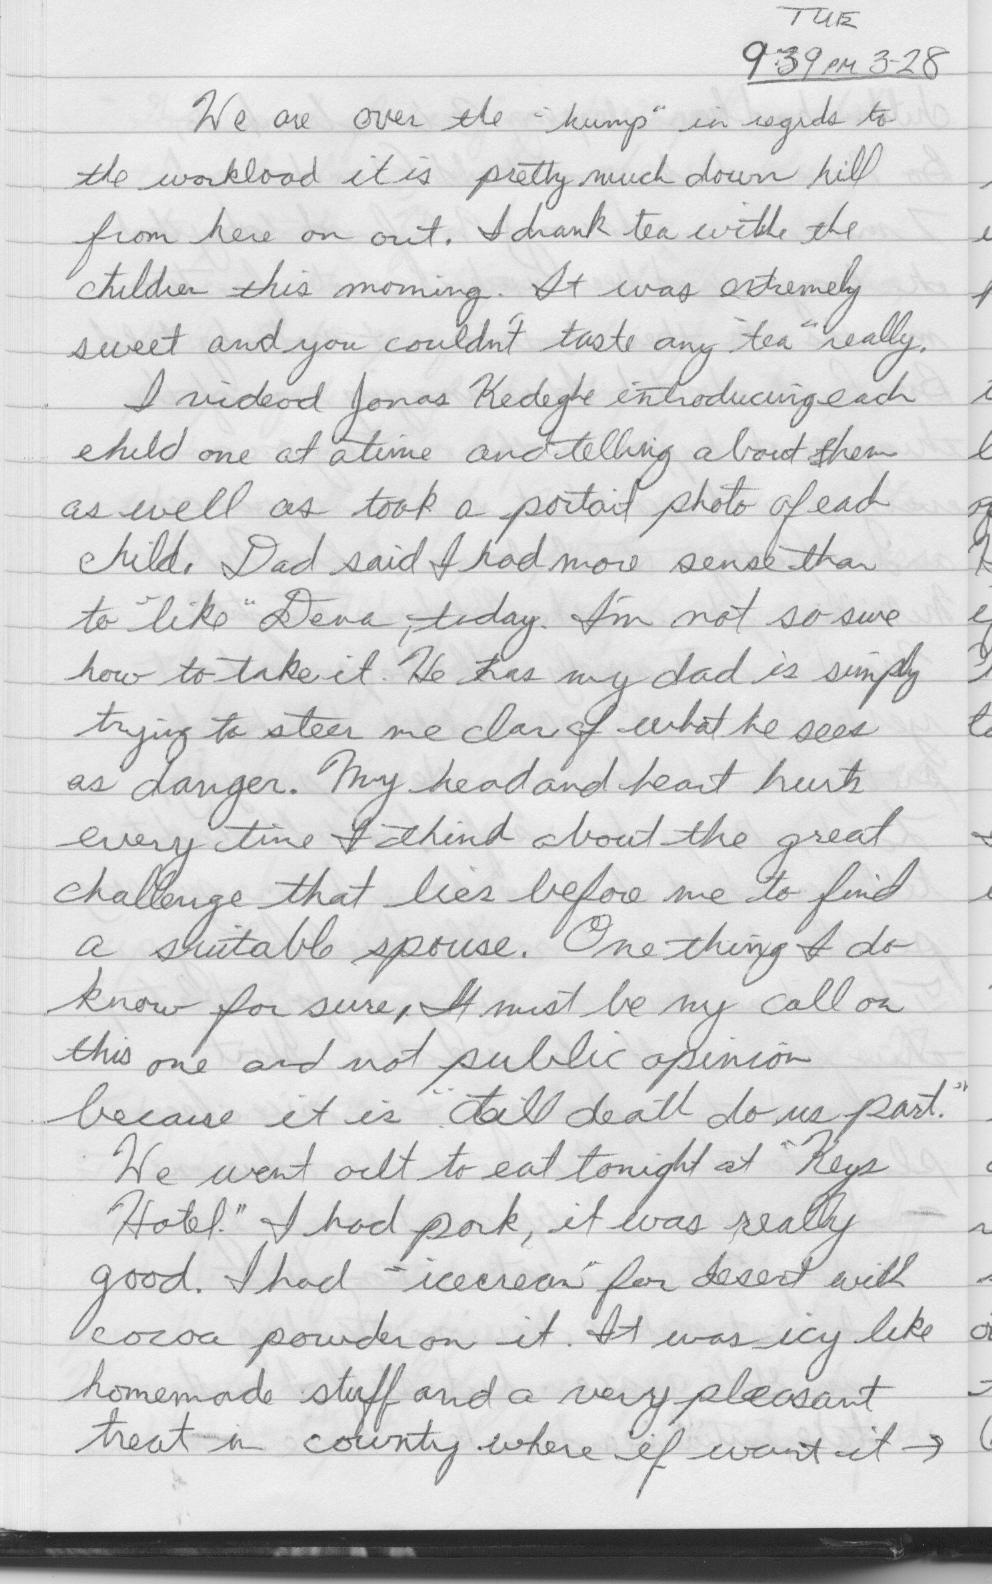 TUE
9:39 PM 3-28
We are over the "hump" in regrds to
the workload it is pretty much down hill
from here on out. I drank tea withe the
children this morning. It was extremely
sweet and you couldn't taste any "tea" really.
I videod Jonas Kedeghe introducing each
child one at a time and telling about them
as well as took a portait photo of each
child. Dad said I had more sense than
to "like" Dena, today. I'm not so sure
how to take it. He has my dad is simply
trying to steer me clar of what he sees
as danger. My head and heart hurts
every time I think about the great
challenge that lies before me to find
a suitable spouse. One thing I do
know for sure, It must be my call on
this one and not public opinion
because it is "till death do us part."
We went out to eat tonight at "Keys
Hotel." I had pork, it was really
good. I had "icecream" for desert with
cocoa powder on it. It was icy like
homemade stuff and a very pleasant
treat in county where if want it →